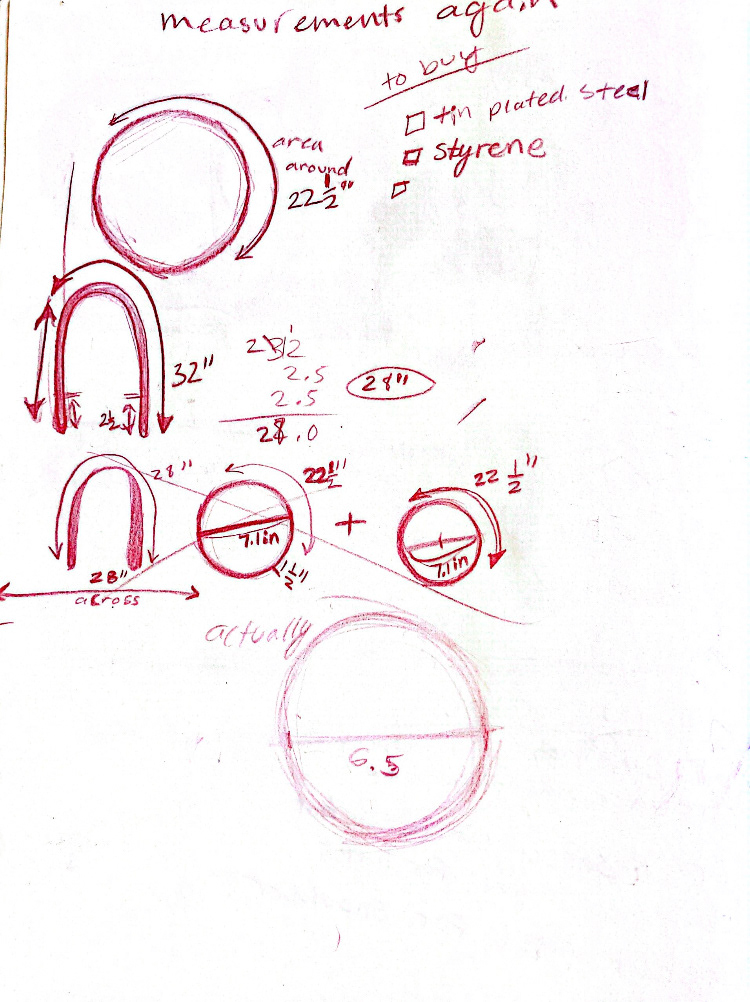 measurements again
to buy
tin plated steel
styrene
area
around
22 1/2"
32"
2 1/2
2.5
2.5
28.0
28"
28"
28"
across
22 1/2"
7.1in
1 1/2"
+
22 1/2"
7.1in
actually
6.5